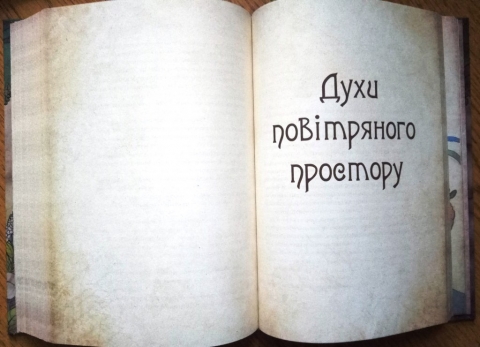 Духи
повітряного
простору